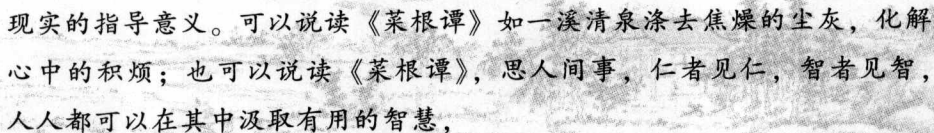 现实的指导意义。可以说读《菜根谭》如一溪清泉涤去焦燥的尘灰，化解
心中的积烦；也可以说读《菜根谭》，思人间事，仁者见仁，智者见智，
人人都可以在其中汲取有用的智慧，